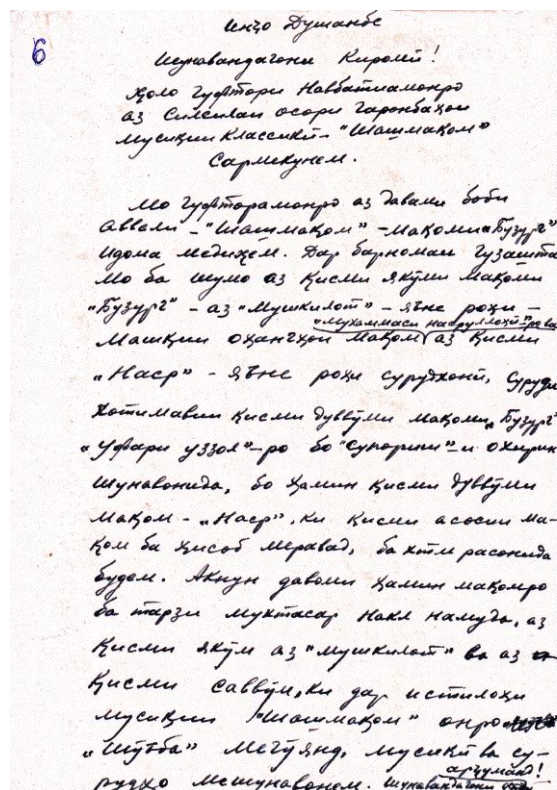 6
Инҷо Душанбе
Шунавандагони Киромӣ!
Ҳоло гуфтори Навбатиамонро
аз Силсилаи осори гаронбаҳои
мусиқии классикӣ - "Шашмақом"
Сармекунем.
Мо гуфторамонро аз давоми боби
аввали - "Шашмақом" - мақоми "Бузург"
идома медиҳем. Дар барномаи гузашта
мо ба шумо аз қисми якӯми мақоми
"Бузург" - аз "Мушкилот" - яъне роҳи -
"Мухаммаси насруллоӣ"-ро ва
машқии оҳангҳои мақом аз қисми
"Наср" - яъне роҳи сурудхонӣ, суруди
хотимавии қисми дуввӯми мақоми "Бузург"
"Уфари уззол"-ро бо "супориш"-и охирин
шунавонида, бо ҳамин қисми дуввӯми
мақом - "Наср", ки қисми асосии ма-
қом ба ҳисоб меравад, ба хтм расонида
будем. Акнун давоми ҳамин мақомро
ба тарзи мухтасар накл намуда, аз
қисми якӯм аз "Мушкилот" ва аз
қисми саввӯм, ки дар истилоҳи
мусиқии "Шашмақом" онро
"Шӯъба" мегӯянд, мусиқӣ ва су-
рудҳо мешунавонем. Шунавандагони
арҷуманд!